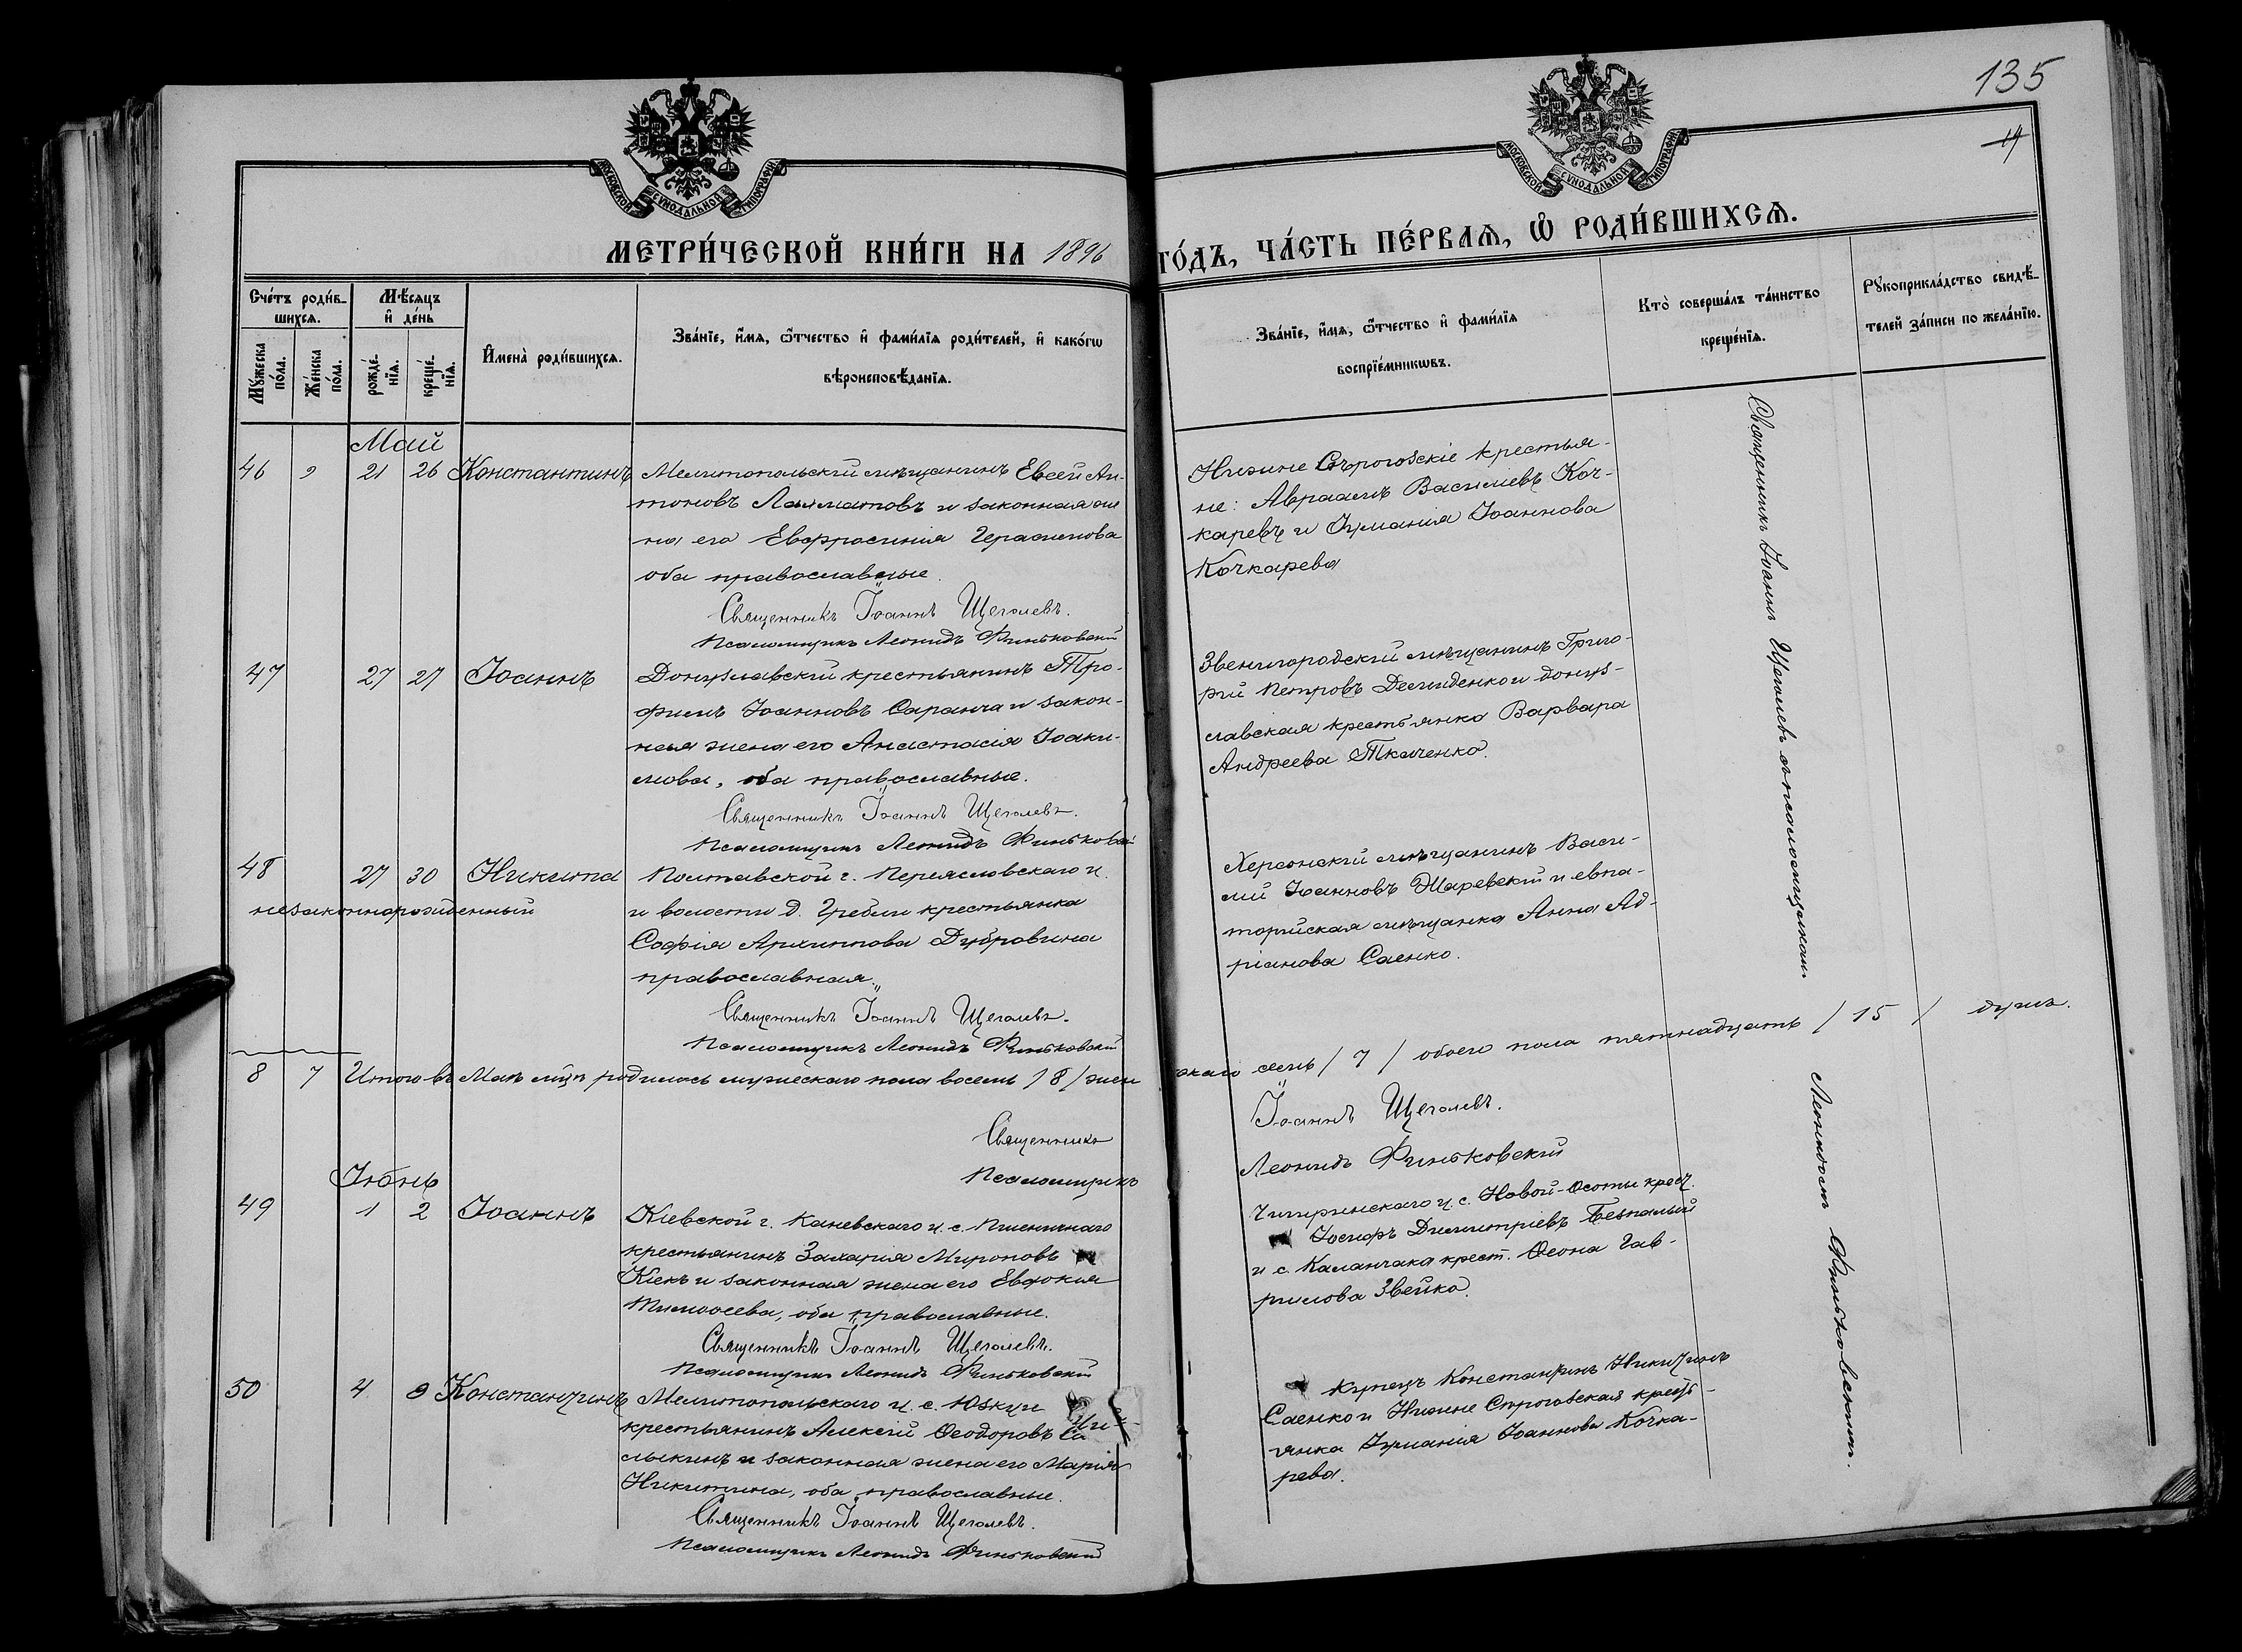 135
19
МОСКОВСКОЙ СѴНОДАЛЬНОЙ ТИПОГРАФІИ
МОСКОВСКОЙ СѴНОДАЛЬНОЙ ТИПОГРАФІИ
МЕТРИ́ЧЕСКОЙ КНИ́ГИ НА 1896
ГО́ДЪ, ЧА́СТЬ ПЕ́РВАѦ, Ѡ҆ РОДИ́ВШИХСѦ.
Сче́тъ роди́в-
шихсѧ.
Мꙋ́жеска по́ла.
Же́нска по́ла.
Мѣ́сѧцъ
и҆ де́нь
рожде́-
нїѧ.
креще́-
нїѧ.
И҆мена̀ роди́вшихсѧ.
Зва́нїе, и҆́мѧ, ѻ҆́тчество и҆ фами́лїѧ роди́телей, и҆ како́гѡ
вѣроисповѣ́данїѧ.
Зва́нїе, и҆́мѧ, ѻ҆́тчество и҆ фами́лїѧ
воспрїе́мникѡвъ.
Кто̀ соверша́лъ та́инство
креще́нїѧ.
Рꙋкоприкла́дство свидѣ́-
телей за́писи по жела́нїю.
Май
46 21 26 Константинъ
Мелитопольскій мѣщанинъ Евсей Ан-
тоновъ и законная же
на его Евфросинія Герасимова
оба православные.
Священникъ Іоаннъ Щеголевъ.
Псаломщикъ Леонидъ Финьковскій
Нижне Сѣрогозскіе крестья-
не: Авраамъ Васильевъ Коч-
каревъ и Іуліанія Іоаннова
Кочкарева
47 27 27 Іоаннъ
Донузлавскій крестьянинъ Тро-
фимъ Іоанновъ Саранча и закон-
ная жена его Анастасія Іоаки-
мова, оба православные.
Священникъ Іоаннъ Щеголевъ.
Псаломщикъ Леонидъ Финьковскій
Звенигородскій мѣщанинъ Григо-
рій Петровъ Демиденко и донуз-
лавская крестьянка Варвара
Андреева Ткаченко.
48 27 30 Никита
незаконнорожденный
Полтавской г. Переяславскаго у.
и волости д. Гребли крестьянка
Софія Архиппова Дубровина
православная.
Священникъ Іоаннъ Щеголевъ.
Псаломщикъ Леонидъ Финьковскій
Херсонскій мѣщанинъ Васи-
лій Іоанновъ и евпа-
торійская мѣщанка Анна Ад-
ріанова Саенко.
8 7 Итого въ Маѣ мцѣ родилось мужескаго пола восемь / 8 / жен
скаго семь / 7 / обоего пола пятнадцать / 15 / душъ.
Священникъ Іоаннъ Щеголевъ.
Псаломщикъ Леонидъ Финьковскій
Іюнь
49 1 2 Іоаннъ
Кіевской г. Каневскаго у. с. Пшеничнаго
крестьянинъ Захарія Мироновъ
и законная жена его Евдокія
Тимоѳеева, оба православные.
Священникъ Іоаннъ Щеголевъ.
Псаломщикъ Леонидъ Финьковскій
Чигиринскаго у. с. Новой-Осоты крест.
Іосифъ Димитріевъ Безпалый
и с. Каланчака крест. Ѳеона Гав-
рилова Звейко.
50 4 9 Константинъ
Мелитопольскаго у. с. Юзкуи
крестьянинъ Алексій Ѳеодоровъ
и законная жена его Марія
Никитина, оба православные.
Священникъ Іоаннъ Щеголевъ.
Псаломщикъ Леонидъ Финьковскій
Купецъ Константинъ Никитинъ
Саенко и Нижне Сѣрогозская крест-
янка Іуліанія Іоаннова Кочка-
рева.
Священникъ Іоаннъ Щеголевъ съ псаломщикомъ
Леонидомъ Финьковскимъ.